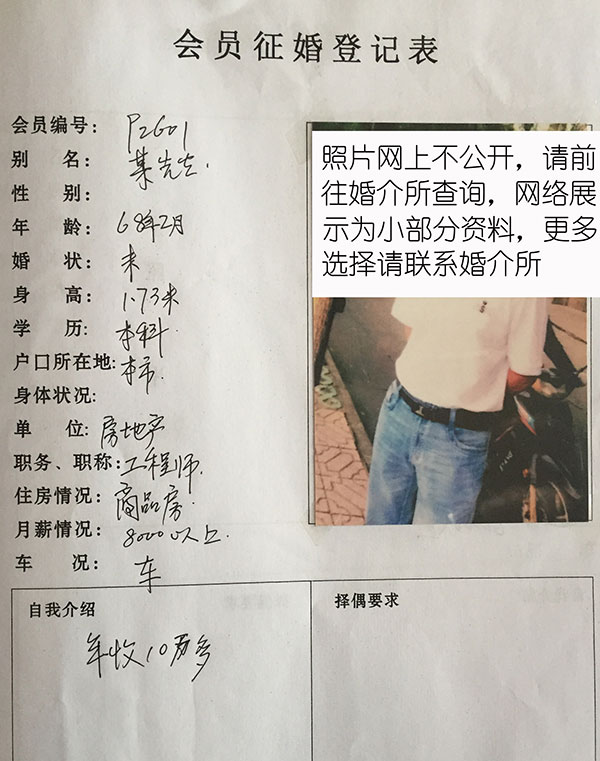 会员征婚登记表
会员编号: P2601
别 名: 某先生.
性 别:
年 龄: 68年2月
婚 状: 未
身 高: 1.73米
学 历: 本科.
户口所在地: 本市.
身体状况:
单 位: 房地产
职务、职称: 工程师.
住房情况: 商品房.
月薪情况: 8000以上.
车 况: 车
照片网上不公开，请前
往婚介所查询，网络展
示为小部分资料，更多
选择请联系婚介所
自我介绍
年收10万多
择偶要求